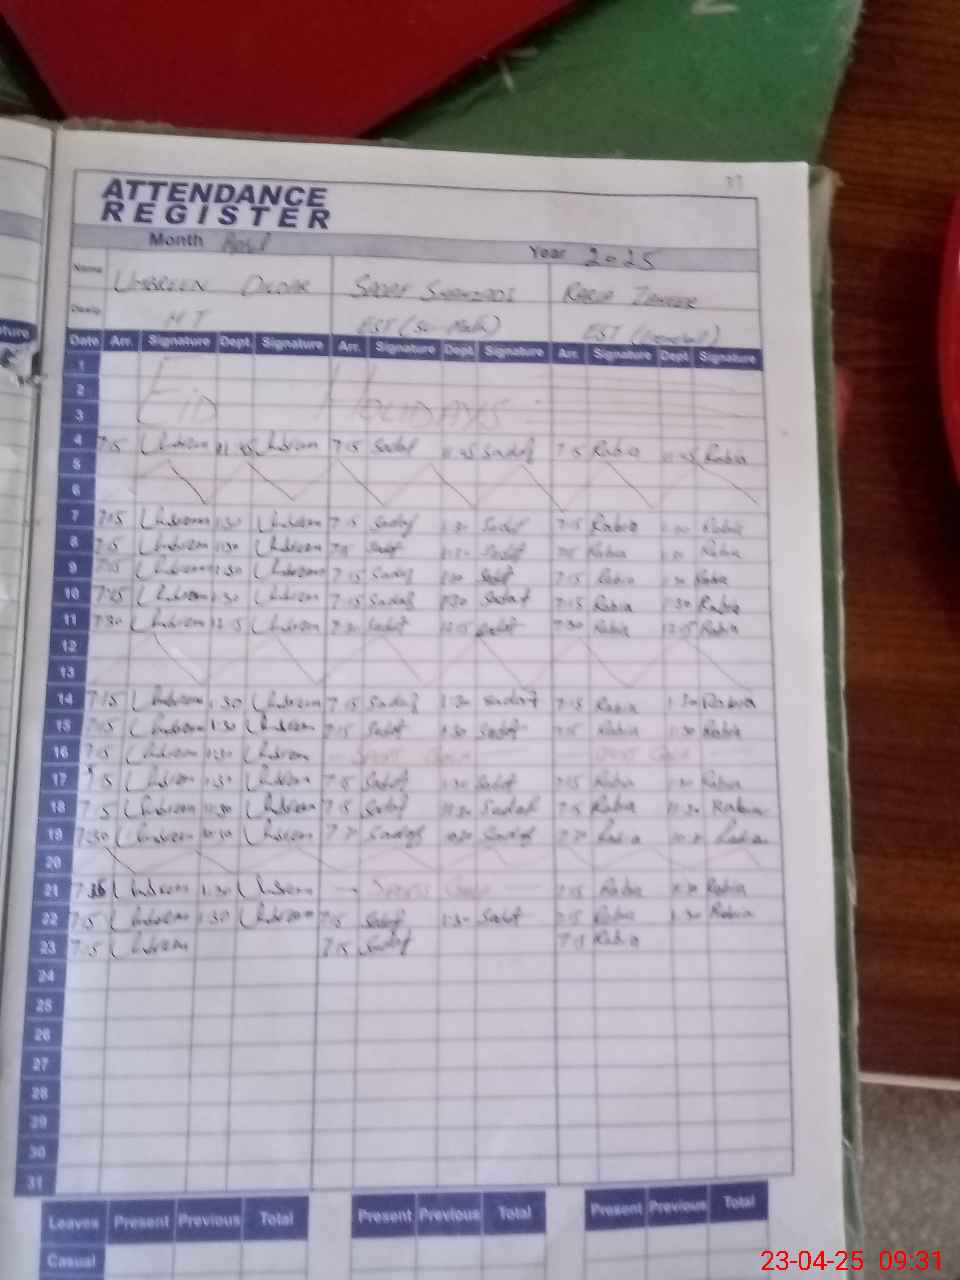 37
ATTENDANCE
REGISTER
Month April Year 2025
Name UMBREEN DILDAR SADAF SHAHZADI RABIA
Desig. HT EST (Sc-Math) EST (General)
Date Arr. Signature Dept. Signature Arr. Signature Dept. Signature Arr. Signature Dept. Signature
1
2
3 EID HOLIDAYS
4 7:15 Umbreen 11:45 Umbreen 7:15 Sadaf 11:45 Sadaf 7:15 Rabia 11:45 Rabia
5
6
7 7:15 Umbreen 1:30 Umbreen 7:15 Sadaf 1:30 Sadaf 7:15 Rabia 1:30 Rabia
8 7:15 Umbreen 1:30 Umbreen 7:15 Sadaf 1:30 Sadaf 7:15 Rabia 1:30 Rabia
9 7:15 Umbreen 1:30 Umbreen 7:15 Sadaf 1:30 Sadaf 7:15 Rabia 1:30 Rabia
10 7:15 Umbreen 1:30 Umbreen 7:15 Sadaf 1:30 Sadaf 7:15 Rabia 1:30 Rabia
11 7:30 Umbreen 12:15 Umbreen 7:30 Sadaf 12:15 Sadaf 7:30 Rabia 12:15 Rabia
12
13
14 7:15 Umbreen 1:30 Umbreen 7:15 Sadaf 1:30 Sadaf 7:15 Rabia 1:30 Rabia
15 7:15 Umbreen 1:30 Umbreen 7:15 Sadaf 1:30 Sadaf 7:15 Rabia 1:30 Rabia
16 7:15 Umbreen 1:30 Umbreen
17 7:15 Umbreen 1:30 Umbreen 7:15 Sadaf 1:30 Sadaf 7:15 Rabia 1:30 Rabia
18 7:15 Umbreen 11:30 Umbreen 7:15 Sadaf 11:30 Sadaf 7:15 Rabia 11:30 Rabia
19 7:30 Umbreen 10:30 Umbreen 7:30 Sadaf 10:30 Sadaf 7:30 Rabia 10:30 Rabia
20
21 Umbreen 1:30 Umbreen Sports 7:15 Rabia 1:30 Rabia
22 7:15 Umbreen 1:30 Umbreen 7:15 Sadaf 1:30 Sadaf 7:15 Rabia 1:30 Rabia
23 7:15 Umbreen 7:15 Sadaf 7:15 Rabia
24
25
26
27
28
29
30
31
Leaves Present Previous Total Present Previous Total Present Previous Total
Casual
23-04-25 09:31